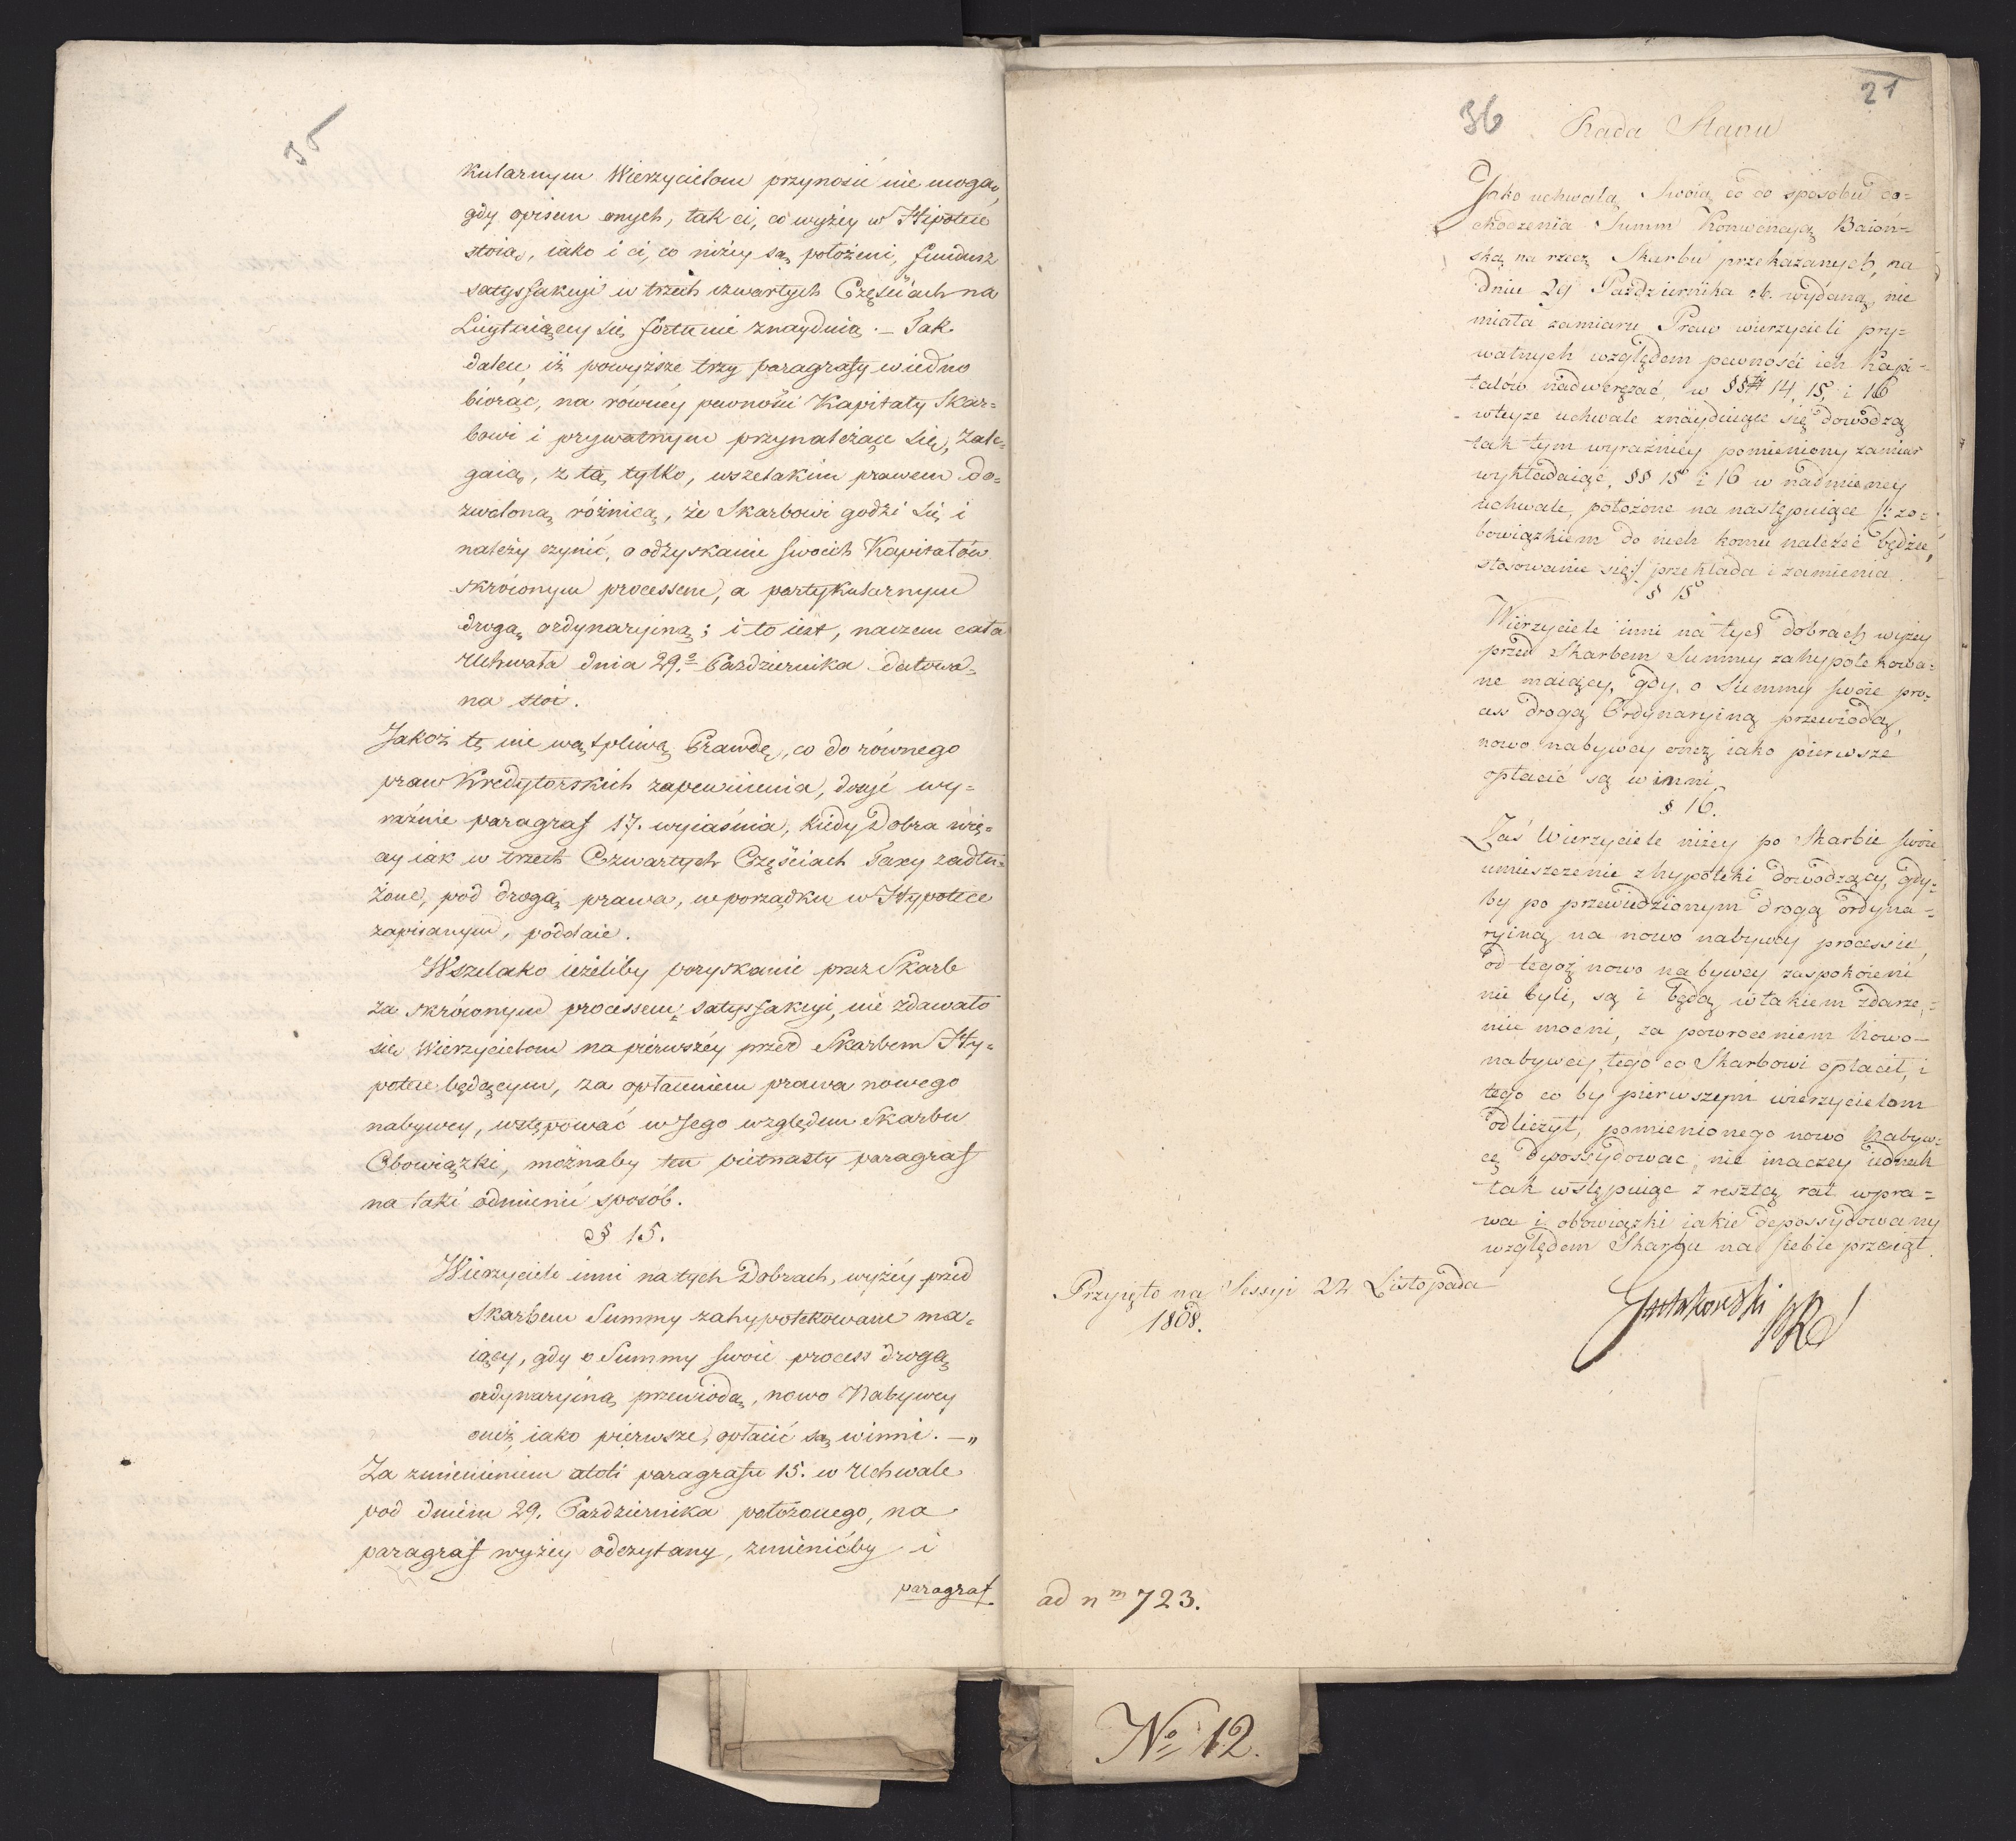 35
kularnym Wierzycielom przynosić nie mogą,
gdy oprócz onych, tak ci, co wyżey w Hipotece
stoią, iako i ci, co niżey są położeni, fundusz
satysfakcyi w trzech czwartych Częściach na
się fortunie znayduią. — Tak
dalece, iż powyższe trzy paragrafy wiedno
biorąc, na równéy pewności Kapitały Skar=
bowi i prywatnym przynależące się, zale=
gaią, z tą tylko, wszelakim prawem do=
zwoloną różnicą, że Skarbowi godzi się i
należy czynić, o odzyskanie swoich Kapitałów
skróconym processem, a partykularnym
drogą ordynaryiną; i to iest, na czem cała
Uchwała dnia 29.º Października datowa=
na stoi.
Jakoż tę nie wątpliwą Prawdę, co do równego
praw Kredytorskich zapewnienia, dosyć wy=
raźnie paragraf 17. wyiaśnia, kiedy Dobra wię=
cy iak w trzech Czwartych Częściach Taxy zadłu=
żone, pod drogą prawa, w porządku w Hypotece
zapisanym, poddaie.
Wszelako ieżeliby pozyskanie przez Skarb
za skróconym processem satysfakcyi, nie zdawało
się Wierzycielom na pierwszéy przed Skarbem Hy=
potece będącym, za opłaceniem prawa nowego
nabywcy, wstępować w Jego względem Skarbu
Obowiązki, możnaby ten pietnasty paragraf
na taki odmienić sposób.
§ 15.
Wierzyciele inni na tych Dobrach, wyżéy przed
Skarbem Summy zahypotekowane ma=
iący, gdy o Summy swoie process drogą
ordynaryiną przewiodą, nowo Nabywcy
oneż, iako pierwsze, opłacić są winni. — „
Za zmienieniem atoli paragrafu 15. w Uchwale
pod dniem 29. Października położonego, na
paragraf wyżey odczytany, zmienićby i
paragraf
36
21
Rada Stanu
Jako uchwałą Swoią co do sposobu do=
chodzenia Summ Konwencyą Baioń=
ską na rzecz Skarbu przekazanych, na
dniu 29 Października r.b. wydaną, nie
miała zamiaru Praw wierzycieli pry=
watnych względem pewności ich Kapi=
tałów nadwerężać, w §§ 14, 15, i 16
wteyże uchwale znayduiące się dowodzą
tak tym wyraźniey pomieniony zamiar
wykładaiąc, §§ 15 i 16 w nadmienioney
uchwale, położone na następuiące /:z zo=
bowiązkiem do nich komu należeć będzie,
stosowanie się:/ przekłada i zamienia.
§ 15
Wierzyciele inni na tych dobrach wyżey
przed Skarbem Summy zahypotekowa=
ne maiący, gdy, o Summy swoie pro=
cess drogą Ordynaryiną przewiodą,
nowo nabywcy oneż iako pierwsze
opłacić są winni.
§ 16.
Zaś Wierzyciele niżey po Skarbie swoie
umieszczenie z hypoteki dowodzący, gdy=
by po przewiedzionym drogą ordyna=
ryiną na nowo nabywcy processie,
od tegoż nowo nabywcy zaspokoieni
nie byli, są i będą w takiem zdarze=
niu mocni, za powroceniem Nowo=
nabywcy, tego co Skarbowi opłacił, i
tego co by pierwszym wierzycielom
odliczył, pomienionego nowo Nabyw=
cę depossydować, nie inaczey iednak
tak wstępuiąc z resztą rat wpra=
wa i obowiązki iakie depossydowany
względem Skarbu na siebie przeiął.
Przyięto na Sessyi 22 Listopada
1808.
Gutakowski PRS
ad nm 723.
No 12.